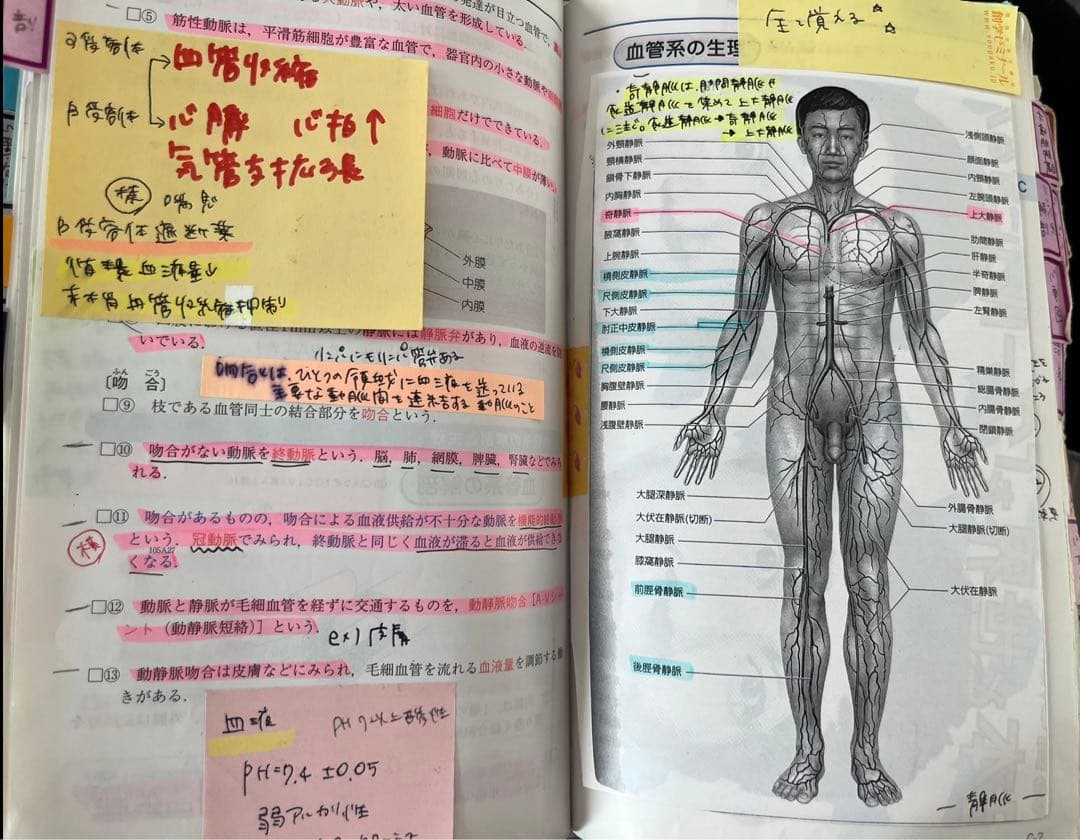 □⑤
筋性動脈は，平滑筋細胞が豊富な血管で，器官内の小さな動脈や
太い血管を形成している．
発達が目立つ血管で，
α受容体
血管収縮
β受容体
心臓 心拍↑
気管支拡張
薬
喘息
β受容体遮断薬
循環血液量↓
末梢血管収縮抑制
細胞だけでできている．
動脈に比べて中膜が薄い
外膜
中膜
内膜
静脈には静脈弁があり，血液の逆流を
いでいる．
リンパにもリンパ管弁ある
吻合とは、ひとつの領域に血液を送っている
主要な動脈間を連絡する動脈のこと
〔吻合〕
ふん ごう
□⑨ 枝である血管同士の結合部分を吻合という．
□⑩ 吻合がない動脈を終動脈という．脳，肺，網膜，脾臓，腎臓などでみら
れる．
□⑪ 吻合があるものの，吻合による血液供給が不十分な動脈を機能的終動脈
という．冠動脈でみられ，終動脈と同じく血液が滞ると血液が供給できな
くなる．
105A27
□⑫ 動脈と静脈が毛細血管を経ずに交通するものを，動静脈吻合［A-Vシャ
ント（動静脈短絡）］という．
ex) 皮膚
□⑬ 動静脈吻合は皮膚などにみられ，毛細血管を流れる血液量を調節する働
きがある．
血液
PH7以上
PH=7.4 ±0.05
弱アルカリ性
全て覚える☆
☆
血管系の生理
・奇静脈は、肋間静脈や
食道静脈を集めて上大静脈
に注ぐ。食道静脈→奇静脈
→上大静脈
外頸静脈
頸横静脈
鎖骨下静脈
内胸静脈
奇静脈
腋窩静脈
上腕静脈
橈側皮静脈
尺側皮静脈
下大静脈
肘正中皮静脈
橈側皮静脈
尺側皮静脈
胸腹壁静脈
腰静脈
浅腹壁静脈
大腿深静脈
大伏在静脈(切断)
大腿静脈
膝窩静脈
前脛骨静脈
後脛骨静脈
浅側頭静脈
顔面静脈
内頸静脈
左腕頭静脈
上大静脈
肋間静脈
肝静脈
半奇静脈
脾静脈
左腎静脈
精巣静脈
総腸骨静脈
内腸骨静脈
閉鎖静脈
外腸骨静脈
大腿静脈(切断)
大伏在静脈
― 静脈 ―
C